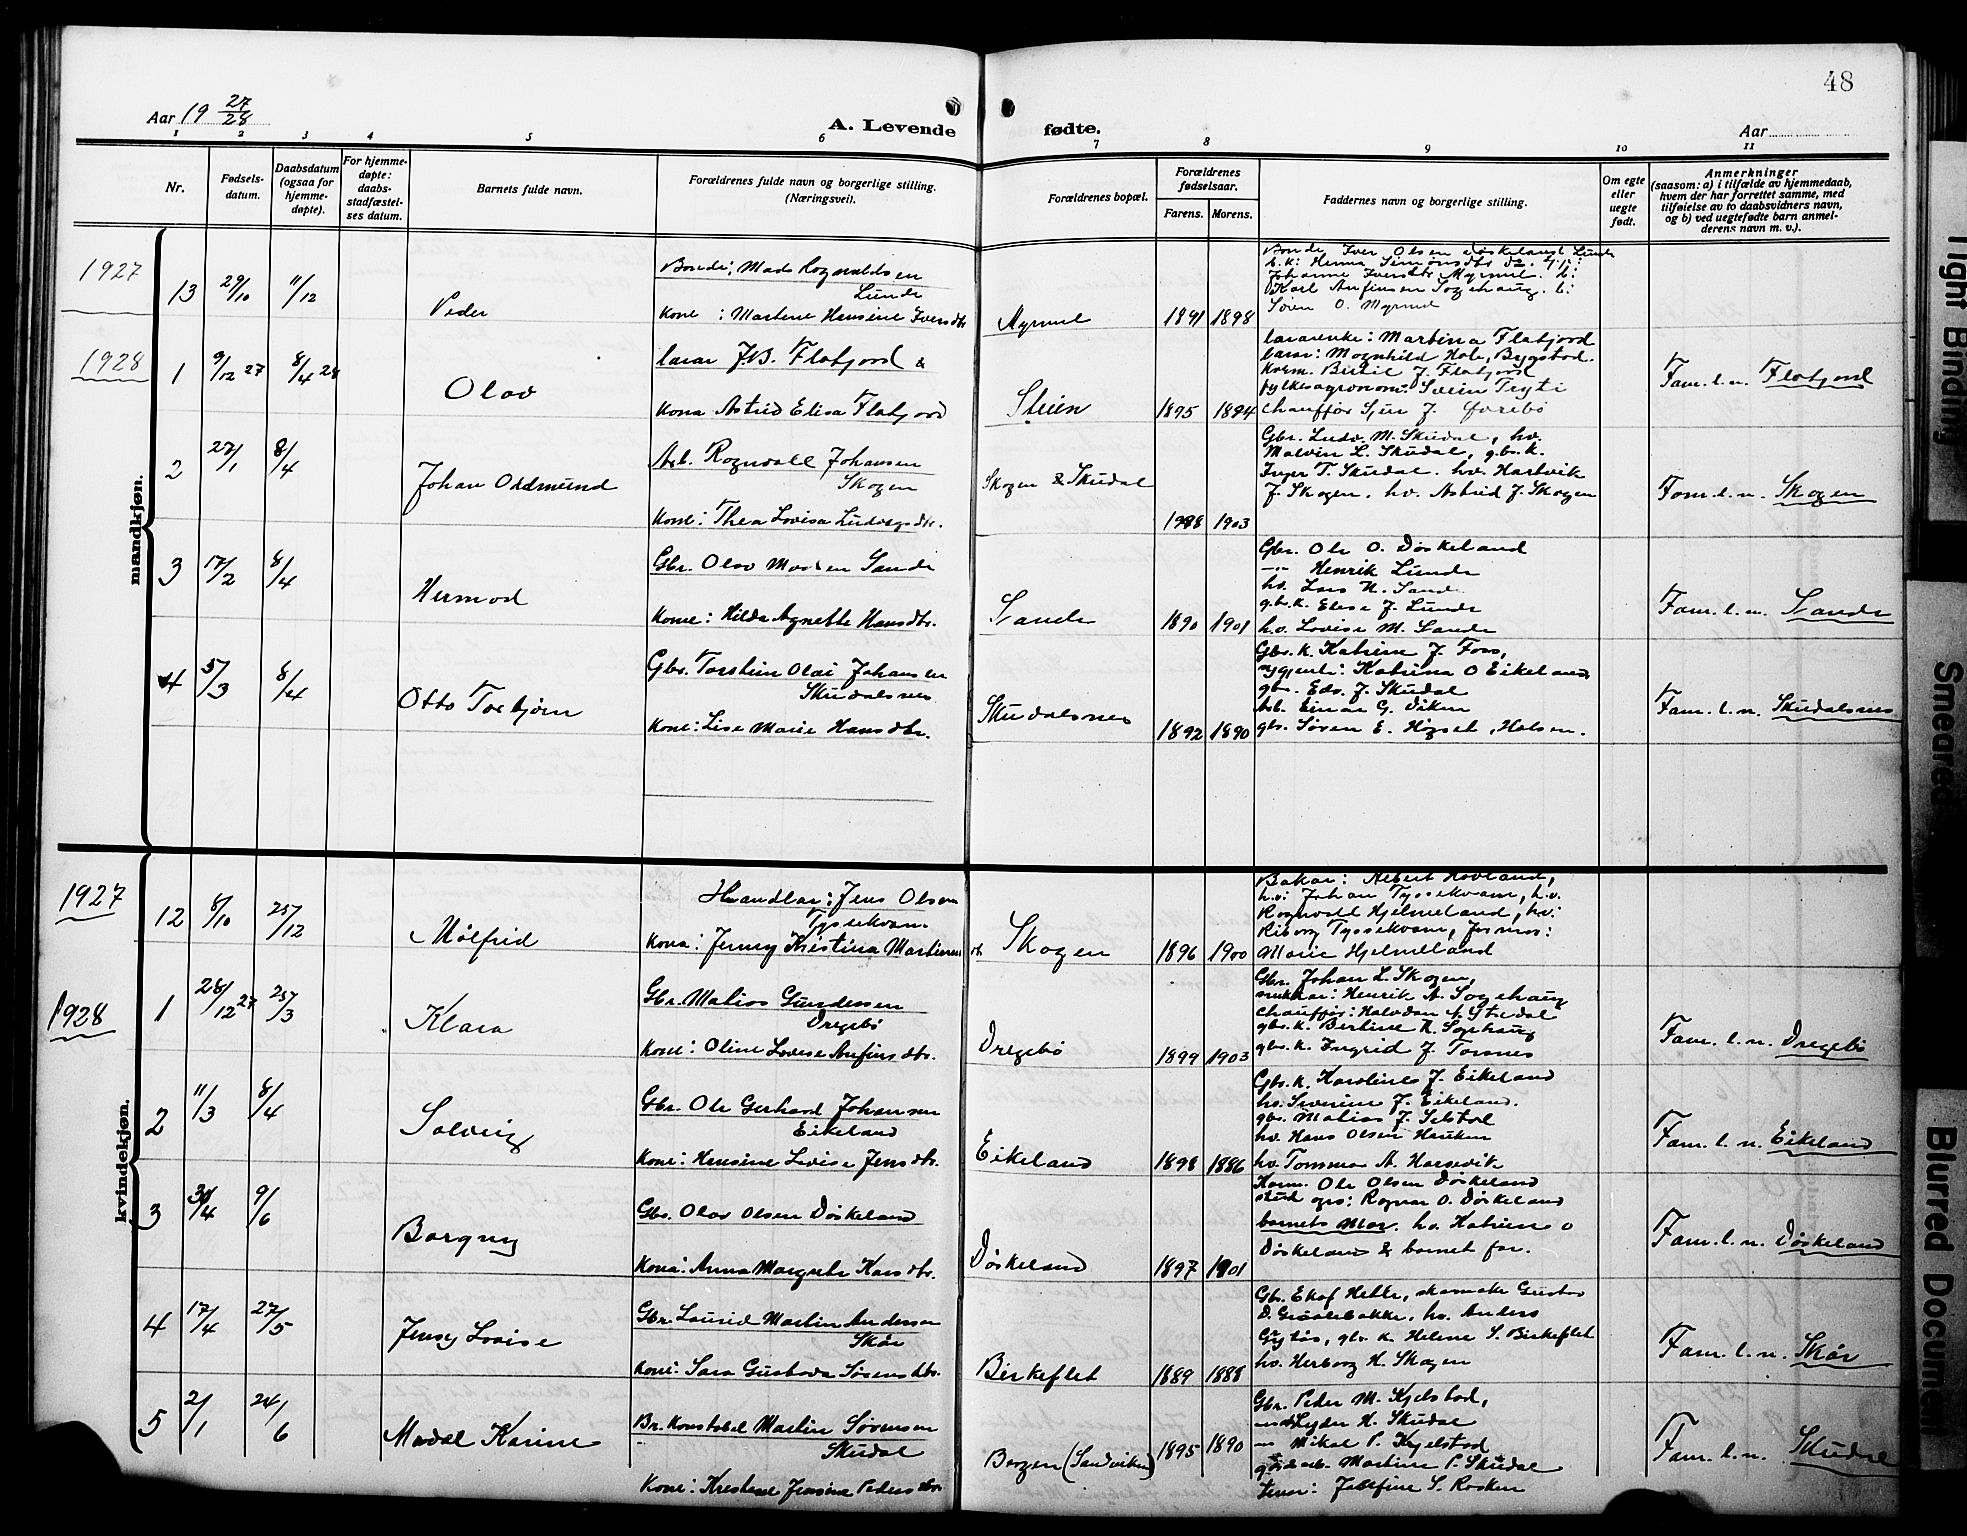 48
Aar 19 27/28
A. Levende
fødte.
Aar
1 2 3 4 5 6 7 8 9 10 11
Nr.
Fødsels-
datum.
Daabsdatum
(ogsaa for
hjemme-
døpte).
For hjemme-
døpte:
daabs-
stadfæstel-
ses datum.
Barnets fulde navn.
Forældrenes fulde navn og borgerlige stilling.
(Næringsvei).
Forældrenes bopæl.
Forældrenes
fødselsaar.
Farens. Morens.
Faddernes navn og borgerlige stilling.
Om egte
eller
uegte
født.
Anmerkninger
(saasom: a) i tilfælde av hjemmedaab,
hvem der har forrettet samme, med
tilføielse av to daabsvidners navn,
og b) ved uegtefødte barn anmel-
derens navn m. v.).
mandkjøn.
1927
13 29/10 11/12
Peder
Bonde: Mads Rognvaldsen
Lunde
Kone : Martene Hansine Iversdtr
Myrmel
1891 1898
Bonde Iver Olsen Døskeland Lunde
Johanne Iversdtr Myrmel.
Karl Anfinsen Sogehaug.
Søren O. Myrmel
1928
1 9/12 27 8/4 28
Olav
lærar J.B. Flatjord &
Kona Astrid Elisa Flatjord
Steien
1895 1894
lærarenke: Martina Flatjord
lærar: Magnhild Hole, Bygstad.
Korm. Bertil J. Flatjord
fylkesagronom: Svein Tryti
chauffør Sjur J. Førebø
Fam. l. n. Flatjord
2 27/1 8/4
Johan Oddmund
Arb. Rognvald Johansen
Skogen
Kone: Thea Lovisa Ludvigsdtr.
Skogen & Skudal
1903
Gbr. Ludv. M. Skudal, hv.
Malvin L. Skudal, g.b.k.
Inger T. Skudal. hv. Hartvik
J. Skogen. hv. Astrid J. Skogen
Fam. l. n. Skogen
3 17/2 8/4
Hermod
Gbr. Olav Madsen Sande
Kone: Hilda Agnette Hansdtr.
Sande
1890 1901
Gbr. Ole O. Døskeland
-"- Henrik Lunde
hv. Lars H. Sande
g.b.k. Elise J. Lunde
h.v. Lovise M. Sande
Fam. l. n. Sande
4 5/3 8/4
Otto Torbjørn
Gbr. Torstein Olai Johansen
Skudalsnes
Kone: Lise Marie Hansdtr.
Skudalsnes
1892 1890
Gbr. K. Katrine J. Foss,
Katrina O Eikeland
gbr. Edv. J. Skudal
Arb. Einar G. Viken
gbr. Søren E. Høgset, Holsen.
Fam. l. n. Skudalsnes
kvindekjøn.
1927
12 8/10 25/12
Målfrid
Handlar: Jens Olsen
Tyssekvam
Kona: Jenny Kristina Martinsen dtr
Skogen
1896 1900
Bakar: Albert Hovland,
h.v: Johan Tyssekvam, h.v.
Rognvald Hjelmeland, hv:
Riborg Tyssekvam,
Marie Hjelmeland
1928
1 28/12 27 25/3
Klara
Gbr. Matias Gundersen
Dregebø
Kone: Oline Lovise Anfinsdtr.
Dregebø
1899 1903
Gbr. Johan L. Skogen,
Henrik A. Sogehaug
chauffør: Halvdan A. Ytredal
gbr. k. Bertine H. Sogehaug
gbr. k. Ingrid J. Torsnes
Fam. l. n. Dregebø
2 11/3 8/4
Solveig
Gbr. Ole Gerhard Johansen
Eikeland
Kone: Hansine Lovise Jensdtr.
Eikeland
1898 1886
Gbr. k. Karoline J. Eikeland
hv. Severine J. Eikeland.
gbr. Matias J. Selstol
hv. Hans Olsen Hauken
hv. Tommas A. Haasevik
Fam. l. n. Eikeland
3 30/4 9/6
Borgny
Gbr. Olav Olsen Døskeland
Kona: Anna Margrete Karsdtr.
Døskeland
1897 1901
Korm. Ole Olsen Døskeland
Ragnar O. Døskeland
barnets Mor. hv. Katrine O
Døskeland & barnet far.
Fam. l. n. Døskeland
4 17/4 27/5
Jenny Lovise
Gbr. Laurid Martin Andersen
Skår
Kone: Sara Gustava Sørensdtr.
Birkeflet
1889 1888
Gbr. Hetle, skomaker Gustav
hv. Anders
gbr. k. Helene S. Birkeflet
hv. Herborg H. Skogen
Fam. l. n. Skår
5 2/1 24/6
Magdal Karine
Br. Konstabel Martin Sørensen
Skudal
Kone: Kristense Jensine Pedersdtr
Bergen (Sandviken)
1895 1890
Gbr. Peder M. Kjelstad,
Lyder H. Skudal
Mikal P. Kjelstad
Martine P. Skudal
Josefine S. Rosken
Fam. l. n. Skudal
Tight Binding
Smeared
Blurred Document